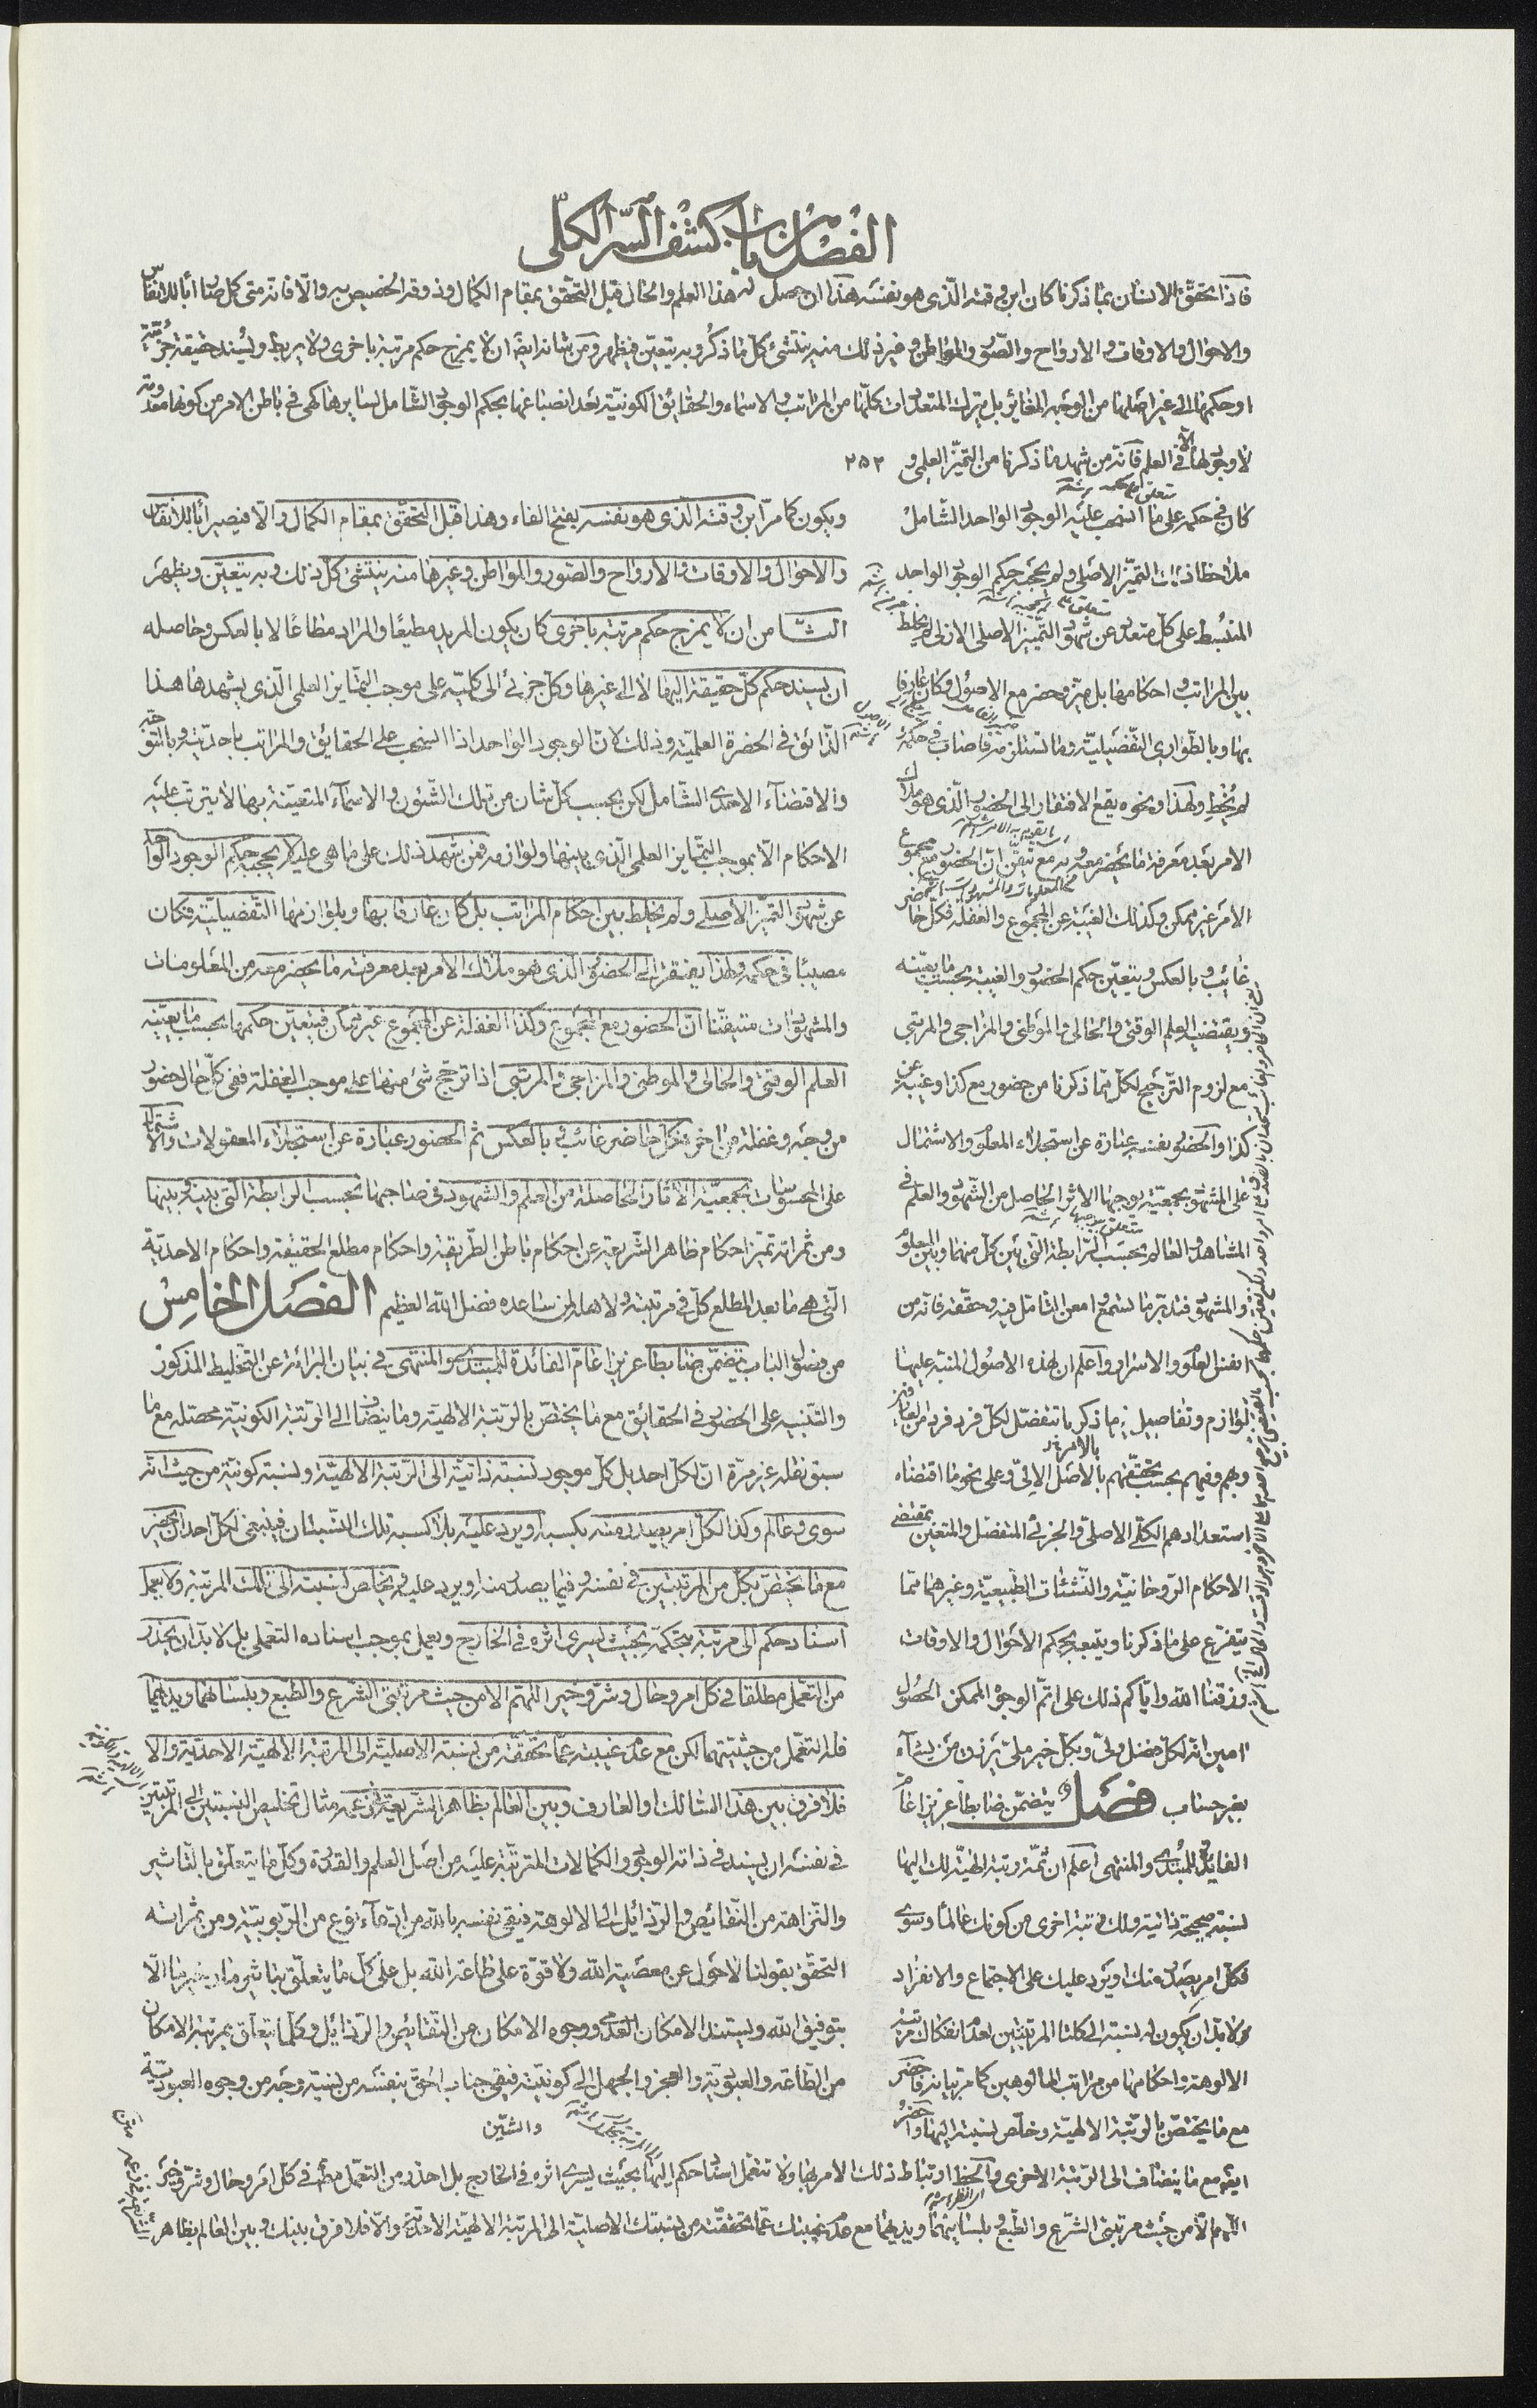 الفصل من باب كشف السر الكلى
فاذا تحقق الانسان بما ذكرنا كان ابن وقته الذى هو نفسه هذا ان حصل له هذا العلم والحال قبل التحقق بمقام الكمال وذوقه الخصيص به والا فانه متى كمل صار ابا للانفاس
والاحوال والاوقات والارواح والصور والمواطن وغير ذلك منه ينتشئ كل ما ذكر وبه يتعين فيظهر ومن شانه ايضا ان لا يمزج حكم مرتبة باخرى ولا يربط ويسند حقيقة جزئية
او حكمها الى غير اصلها من الوجه المغاير بل يترك المتعددات كلها من المراتب والاسماء والحقائق الكونية بعد انصباغها بحكم الوجود الشامل لسايرها كهى فى باطن الامر من كونها معدومة
لا وجود لها الا فى العلم فانه من شهد ما ذكرنا من التميز العلمى و ٢٥٢
كان فى حكمه على ما انسحب عليه الوجود الواحد الشامل
ملاحظا ذات التميز الاصلى ولم يحجبه حكم الوجود الواحد
المنبسط على كل متعدد عن شهود التميز الاصلى الازلى لم يخلط
بين المراتب واحكامها بل ميز وحضر مع الاصول وكان عارفا
بها وبالطوارى التفصيلية وما تستلزمه فاصاب فى حكمه
لم يخط ولهذا ونحوه يقع الافتقار الى الحضور الذى هو ملاك
الامر بعد معرفة ما يحضر معه وبه مع تيقن ان الحضور مع مجموع
الامر غير ممكن وكذلك الغيبة عن المجموع والغفلة فكل حاضر
غائب وبالعكس ويتعين حكم الحضور والغيبة بحسب ما يعينه
ويقتضيه العلم الوقتى والحالى والموطنى والمزاجى والمرتبى
مع لزوم الترجيح لكل مما ذكرنا من حضور مع كذا وغيبة عن
كذا والحضور نفسه عبارة عن استجلاء المعلوم والاشتمال
على المشهود بجمعية يوجبها الاثر الحاصل من الشهود والعلم فى
المشاهد والعالم بحسب الرابطة التى بين كل منهما وبين المعلوم
والمشهود فتدبر ما تسمع وامعن التامل فيه وحققه فانه من
انفس العلوم والاسرار واعلم ان لهذه الاصول المنبه عليها
لوازم وتفاصيل مما ذكر ما تنفصل لكل فرد فرد من العارفين
وبهم وفيهم بحسب تحققهم بالاصل الالى وعلى نحو ما اقتضاه
استعدادهم الكلى الاصلى والجزئى المنفصل والمتعين بمقتضى
الاحكام الروحانية والنشئات الطبيعية وغيرهما مما
يتفرع على ما ذكرنا ويتبعه بحكم الاحوال والاوقات
ورزقنا الله واياكم ذلك على اتم الوجوه الممكن الحصول
امين انه لكل فضل ولى وبكل خير ملى يرزق من يشاء
بغير حساب فصل يتضمن ضابطا عزيزا عام
الفايدة للمبتدى والمنتهى اعلم ان ثمة رتبة الهية لك اليها
نسبة صحيحة ذاتية ولك رتبة اخرى من كونك عالما وسوى
فكل امر يصدر منك او يرد عليك على الاجتماع والانفراد
ولا بد ان يكون له نسبة الى كلتا المرتبتين لعدم انفكاك مرتبة
الالوهة واحكامها من مراتب المالوهين كما مر بيانه فاحضر
مع ما يختص بالرتبة الالهية وخلص نسبته اليها واحضر
ويكون كما مر ابن وقته الذى هو نفسه بفتح الفاء وهذا قبل التحقق بمقام الكمال والا فيصير ابا للانفاس
والاحوال والاوقات والارواح والصور والمواطن وغيرها منه ينتشئ كل ذلك وبه يتعين ويظهر
الثامن ان لا يمزج حكم مرتبة باخرى كان يكون المريد مطيعا والمراد مطاعا لا بالعكس وحاصله
ان يسند حكم كل حقيقة اليها لا الى غيرها وكل جزئى الى كليته على موجب التمايز العلمى الذى يشهدها هذا
الذائق فى الحضرة العلمية وذلك لان الوجود الواحد اذا انسحب على الحقائق والمراتب باحديته وبالتوجه
والاقتضاء الاحدى الشامل لكن بحسب كل شان من تلك الشئون والاسماء المتعينة بها لا يترتب عليه
الاحكام الا بموجب التمايز العلمى الذى بينها ولوازمه فمن شهد ذلك على ما هى عليه لم يحجبه حكم الوجود الواحد
عن شهود التميز الاصلى ولم يخلط بين احكام المراتب بل كان عارفا بها وبلوازمها التفصيلية فكان
مصيبا فى حكمه ولهذا يفتقر الى الحضور الذى هو ملاك الامر بعد معرفة ما يحضر معه من المعلومات
والمشهودات متيقنا ان الحضور مع المجموع وكذا الغفلة عن المجموع غير ممكن فيتعين حكمها بحسب ما يعينه
العلم الوقتى والحالى والموطنى والمزاجى والمرتبى اذا ترجح شئ منها على موجب الغفلة ففى كل حال حضور
من وجه وغفلة من اخر فكل حاضر غائب وبالعكس ثم الحضور عبارة عن استجلاء المعقولات والاشتمال
على المحسوسات بجمعية الاثار الحاصلة من العلم والشهود فى صاحبها بحسب الرابطة التى بينه وبينها
ومن ثمراته تميز احكام ظاهر الشريعة عن احكام باطن الطريقة واحكام مطلع الحقيقة واحكام الاحدية
التى هى ما بعد المطلع كل فى مرتبته ولاهله لمن ساعده فضل الله العظيم الفصل الخامس
من فصول الباب يتضمن ضابطا عزيزا عام الفائدة للمبتدى والمنتهى فى بيان البرائة عن التخليط المذكور
والتنبيه على الحضور فى الحقائق مع ما يختص بالرتبة الالهية وما ينضاف الى الرتبة الكونية محصله مع ما
سبق نقله غير مرة ان لكل احد بل كل موجود نسبة ذاتية الى الرتبة الالهية ونسبة كونية من حيث انه
سوى وعالم وكذا لكل امر يصدر منه بكسبه او يرد عليه بلا كسبه تلك النسبتان فينبغى لكل احد ان يحضر
مع ما يختص بكل من المرتبتين فى نفسه وفيما يصدر منه او يرد عليه ويخلص نسبته الى تلك المرتبة ولا يتعمل
اسناد حكم الى مرتبة بتحكمه بحيث يسرى اثره فى الخارج ويعمل بموجب اسناده التعملى بل لا بد ان يحذر
من التعمل مطلقا فى كل امر وحال وشر وخير اللهم الا من حيث مرتبتى الشرع والطبع وبلسانهما ويديهما
فله التعمل من حيثيتهما لكن مع عدم غيبته عما تحققه من نسبته الاصلية الى المرتبة الالهية الاحدية والا
فلا فرق بين هذا السالك او العارف وبين العالم بظاهر الشريعة فى زعمه مثال تخليص النسبتين الى المرتبتين
فى نفسه ان يسند فى ذاته الوجود والكمالات المترتبة عليه من اصل العلم والقدرة وكل ما يتعلق بالتاثير
والنزاهة من النقائص والرذائل الى الالوهة فيقى نفسه بالله من ادعاء نوع من الربوبية ومن ثمراته
التحقق بقولنا لا حول عن معصية الله ولا قوة على طاعة الله بل على كل ما يتعلق بتاثير ما
بتوفيق الله ويستند الامكان العدمى ووجوه الامكان من النقائص والرذائل وكل ما يتعلق بمرتبة الامكان
من الطاعة والعبودية والعجز والجهل الى كونيته فيقى جناب الحق بنفسه من نسبة وجه من وجوه العبودية
والشين
ايضا مع ما ينضاف الى الرتبة الاخرى والحظ ارتباط ذلك الامر بها ولا تتعمل اسناد حكم اليها بحيث يسرى اثره فى الخارج بل احذر من التعمل مطلقا فى كل امر وحال وشر وخير
اللهم الا من حيث مرتبتى الشرع والطبع وبلسانيهما ويديهما مع عدم غيبتك عما تحققته من نسبتك الاصلية الى المرتبة الالهية الاحدية والا فلا فرق بينك وبين العالم بظاهر